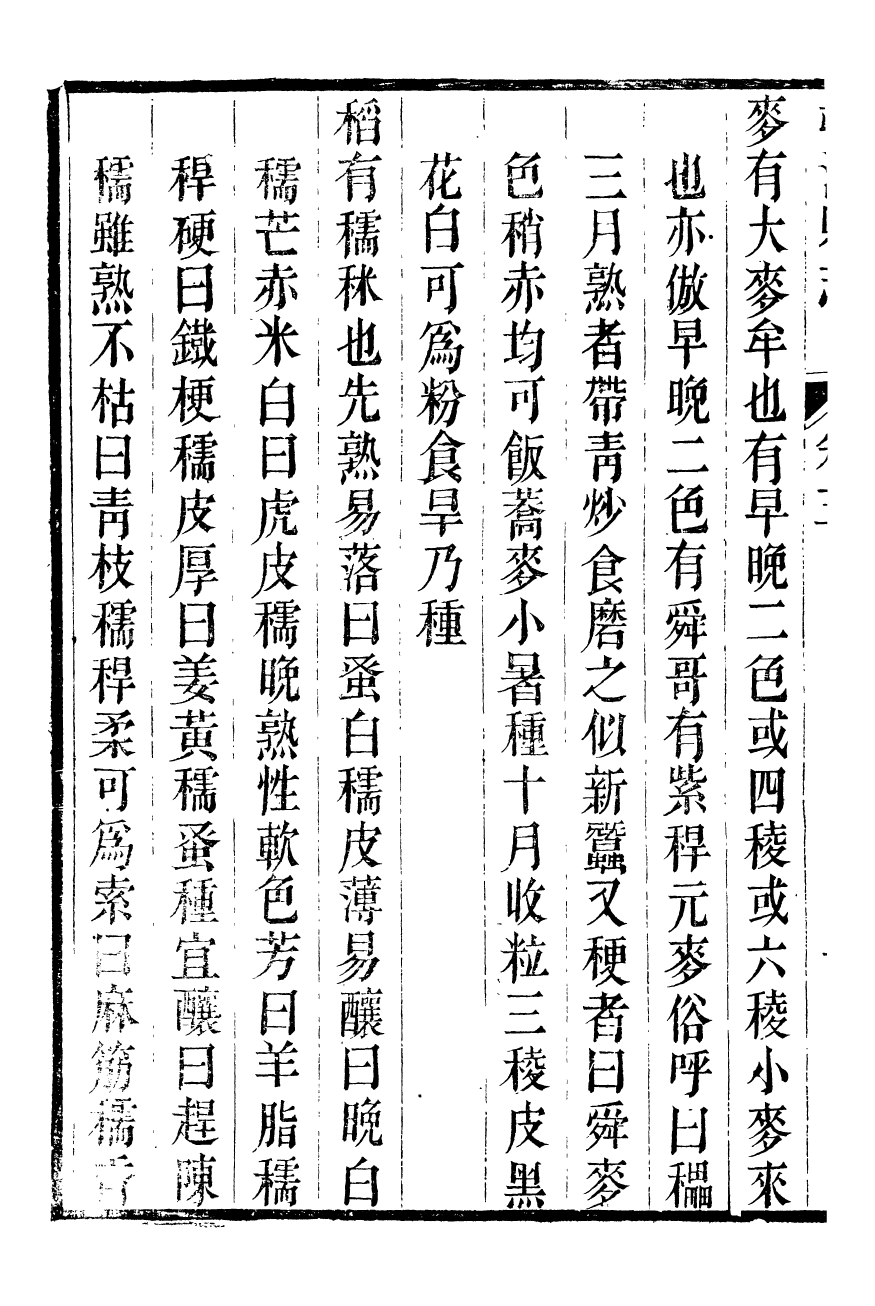 麥有大麥牟也有早晚二色或四稜或六稜小麥來
也亦倣早晚二色有舜哥有紫稈元麥俗呼曰穲
三月熟者帶青炒食磨之似新蠶又稉者曰舜麥
色稍赤均可飯蕎麥小暑種十月收粒三稜皮黑
花白可爲粉食旱乃種
稻有穤秫也先熟易落曰蚤白穤皮薄易釀曰晚白
穤芒赤米白曰虎皮穤晚熟性軟色芳曰羊脂穤
稈硬曰鐵梗穤皮厚曰姜黃穤蚤種宜釀曰趕陳
穤雖熟不枯曰靑枝穤稈柔可爲索曰麻筋穤香